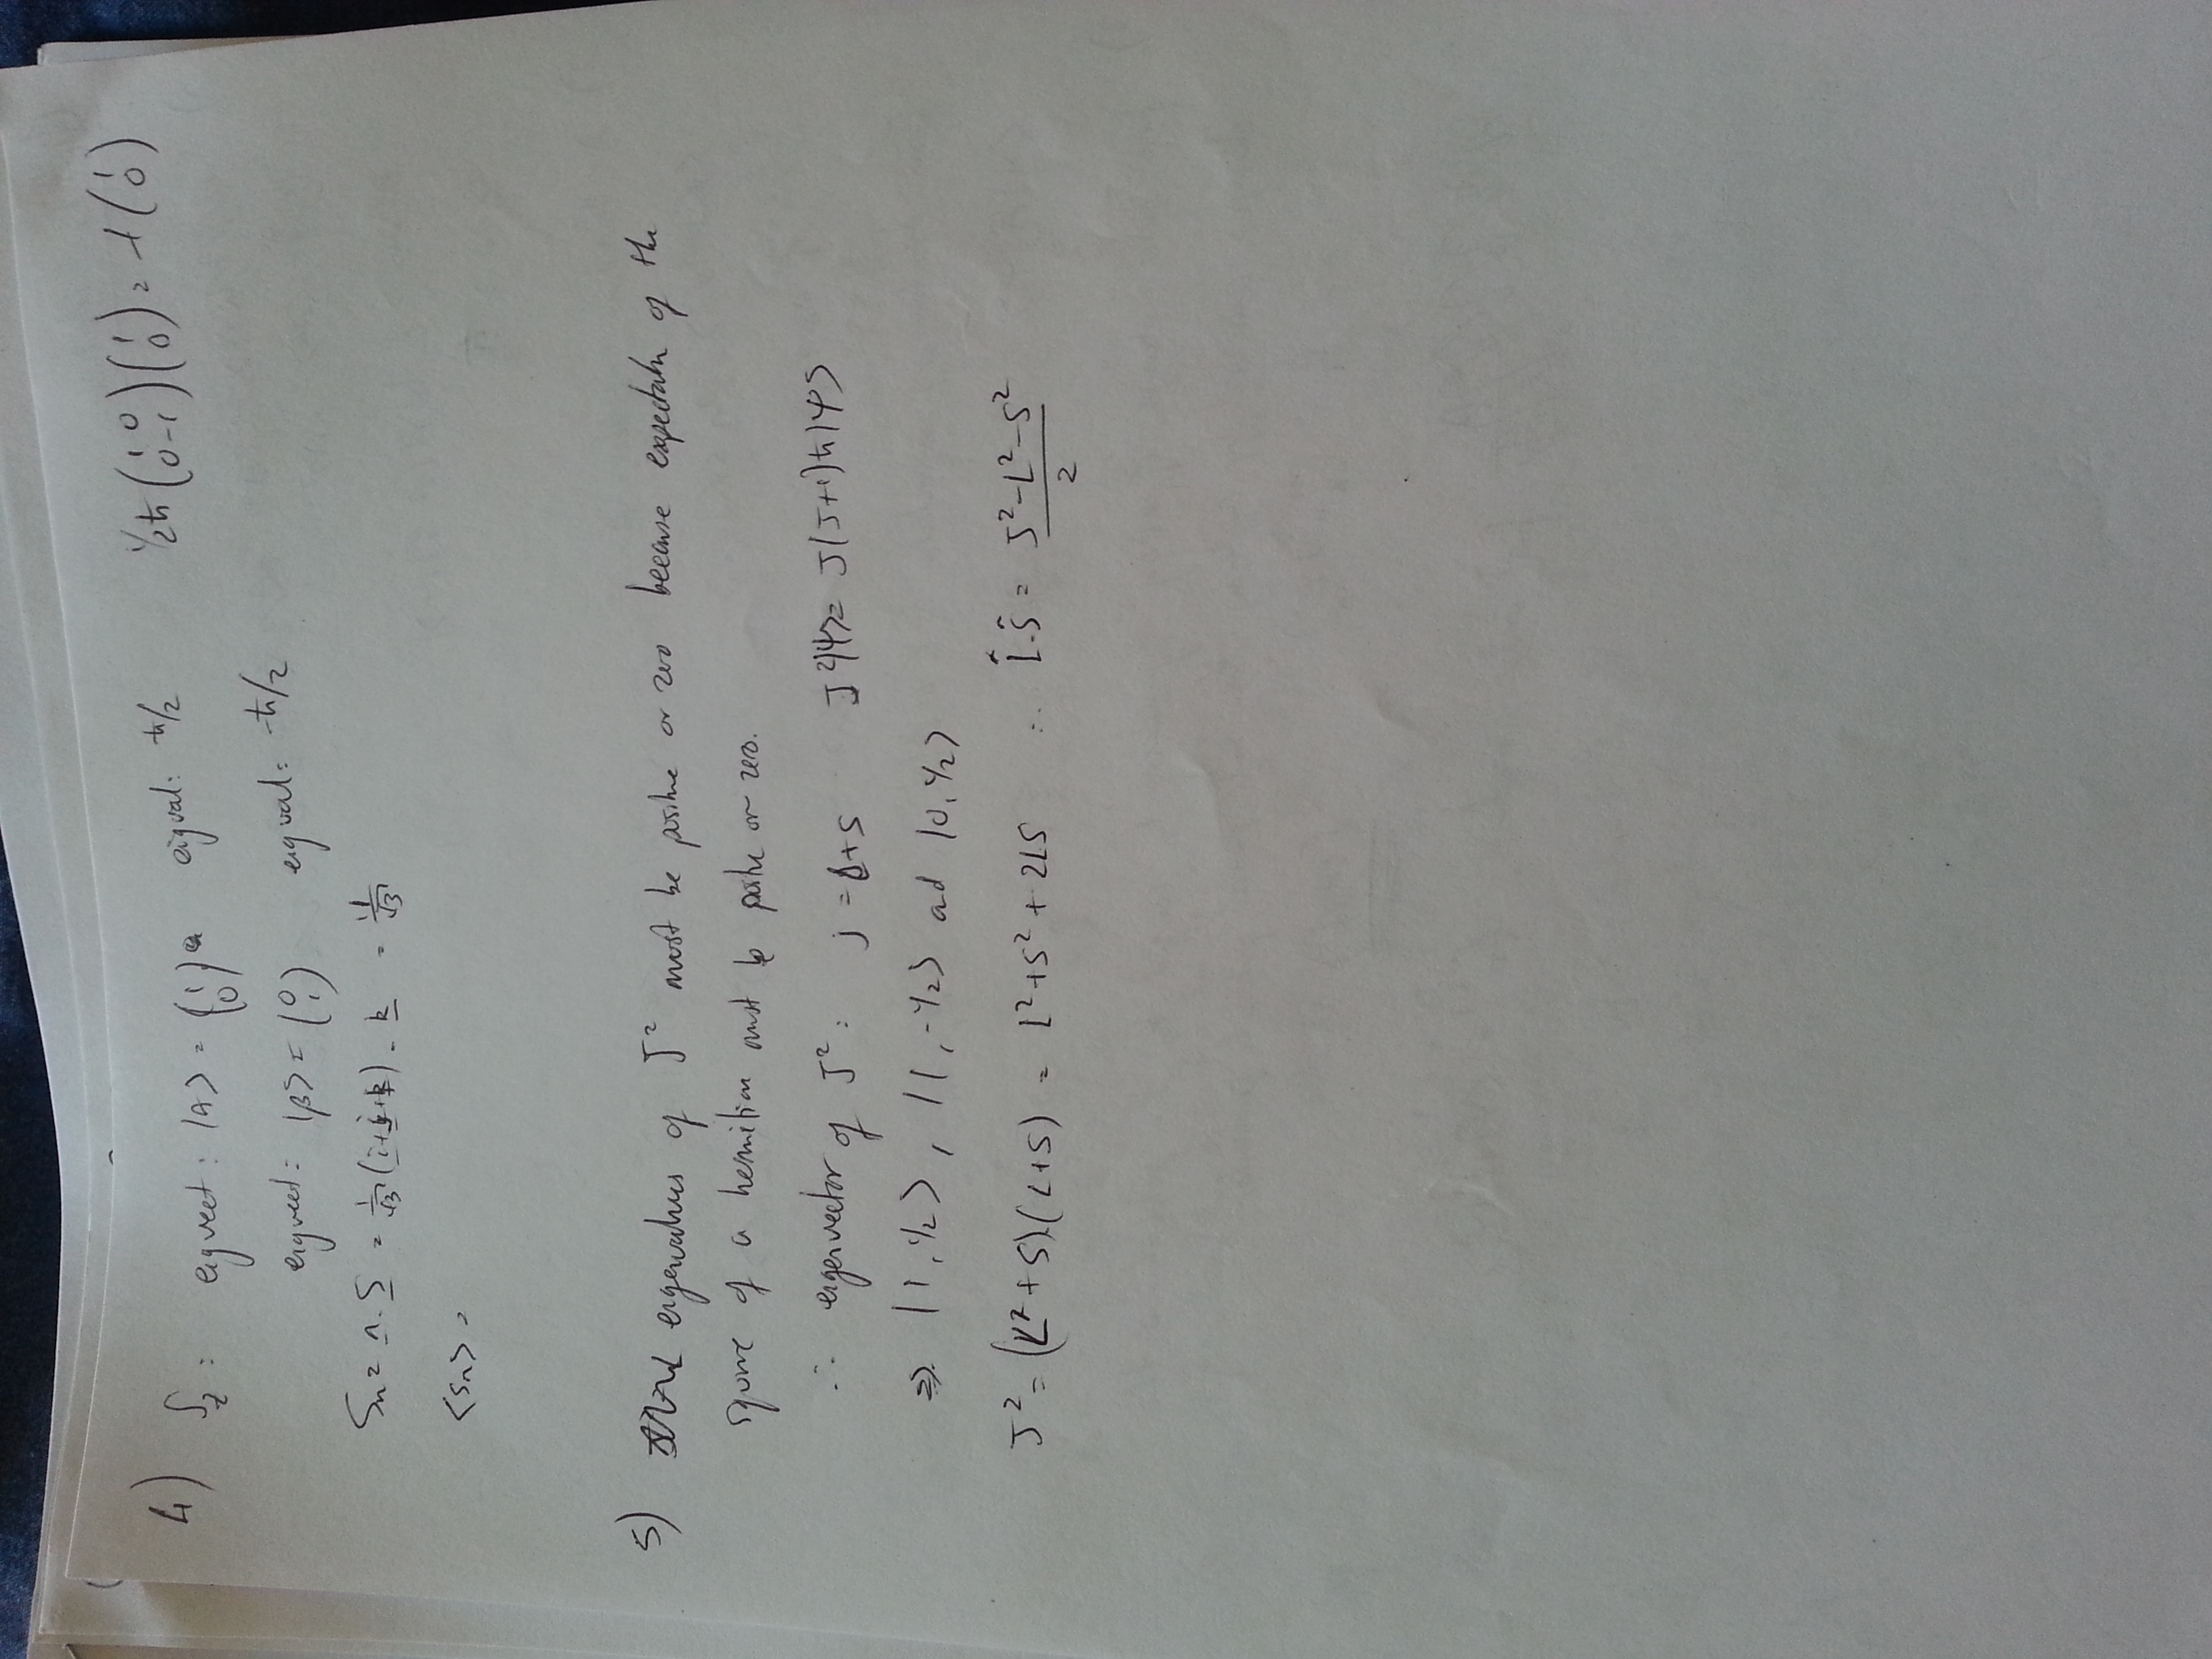 4) S_z : eigvect : |A> = (1 0) eigval: ħ/2 1/2ħ (1 0 0 -1)(1 0) = λ(1 0)
eigvect: |β> = (0 1) eigval: -ħ/2
Sn = n . S = 1/√3 (i+j+k) . k = 1/√3
<Sn> =
5) eigenvalues of J² must be positive or zero because expectatn of the
square of a hermitian must be positve or zero.
∴ eigenvector of J² : j = l+s J²|ψ> = J(J+1)ħ|ψ>
⇒ |1, 1/2> , |1, -1/2> and |0, 1/2>
J² = (L² + S).(L+S) = L²+S² + 2LS ∴ L̂.Ŝ = J²-L²-S² / 2